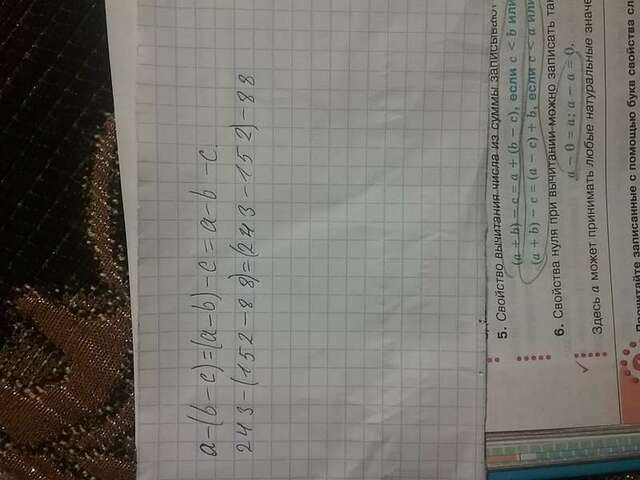 a-(b-c)=(a-b)-c=a-b-c.
243-(152-88)=(243-152)-88
5. Свойство вычитания числа из суммы
(a + b) - c = a + (b - c), если c < b или
(a + b) - c = (a - c) + b, если c < a или
6. Свойства нуля при вычитании можно записать
a - 0 = a; a - a = 0.
Здесь a может принимать любые натуральные
Прочитайте записанные с помощью букв свойства